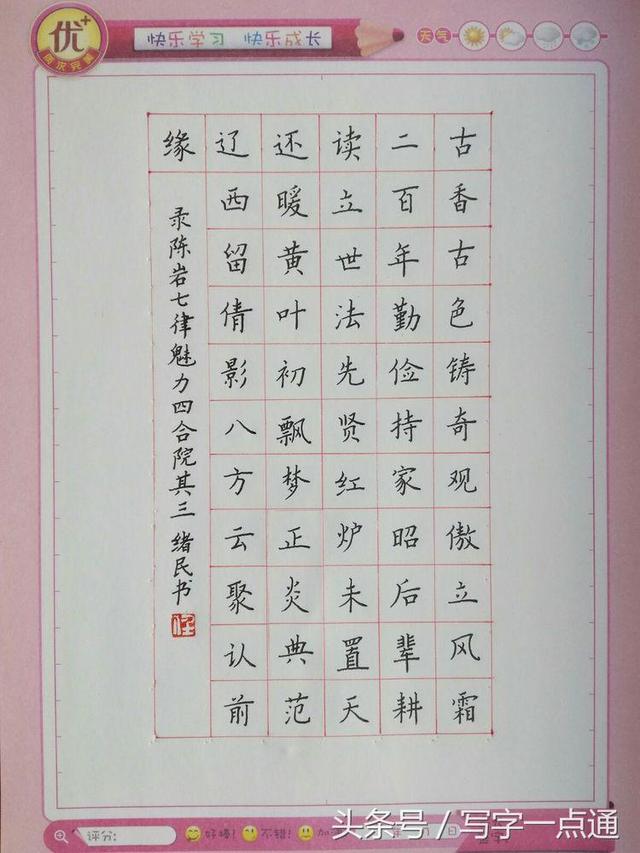 优+
快乐学习 快乐成长
天气
古香古色铸奇观傲立风霜
二百年勤俭持家昭后辈耕
读立世法先贤红炉未置天
还暖黄叶初飘梦正炎典范
辽西留倩影八方云聚认前
缘
录陈岩七律魅力四合院其三 绪民书
评分:
好棒!
不错!
加
头条号 / 写字一点通